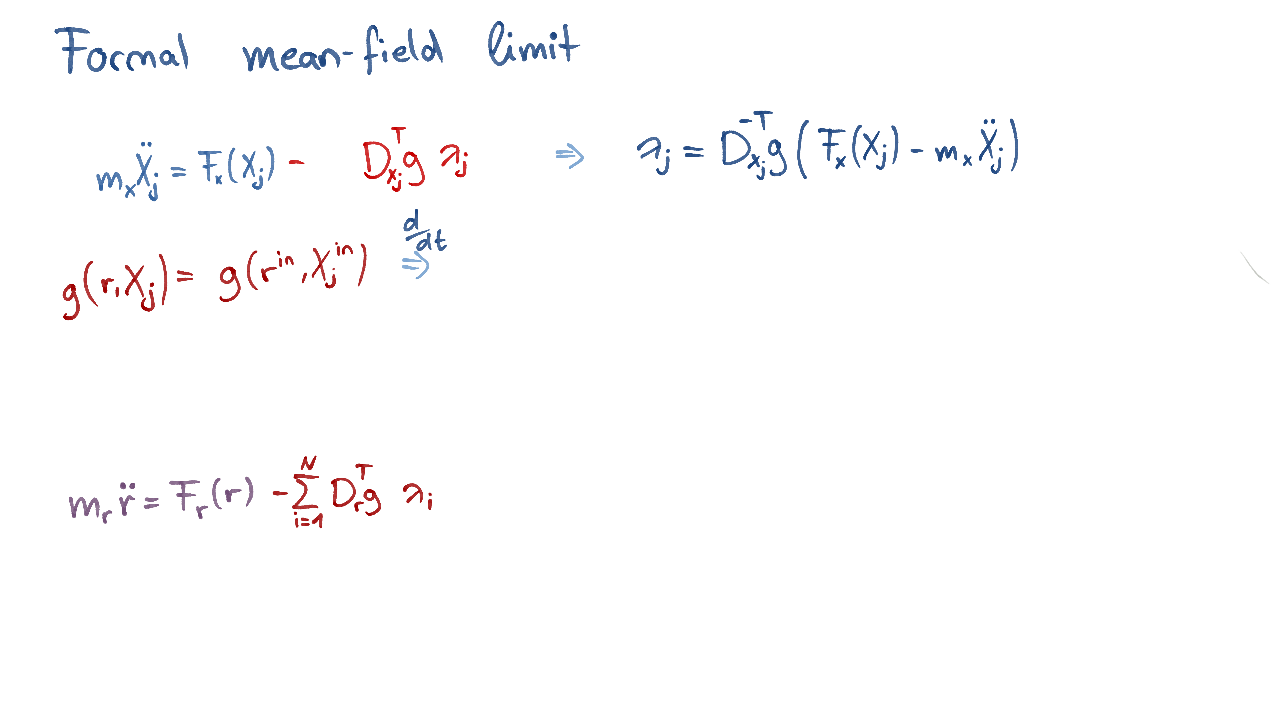 Formal mean-field limit
m_x Ẍ_j = F_x(X_j) - D_{x_j}^T g λ_j ⇒ λ_j = D_{x_j}^{-T} g ( F_x(X_j) - m_x Ẍ_j )
g(r, X_j) = g(r^{in}, X_j^{in}) d/dt ⇒
m_r r̈ = F_r(r) - ∑_{i=1}^N D_r^T g λ_i